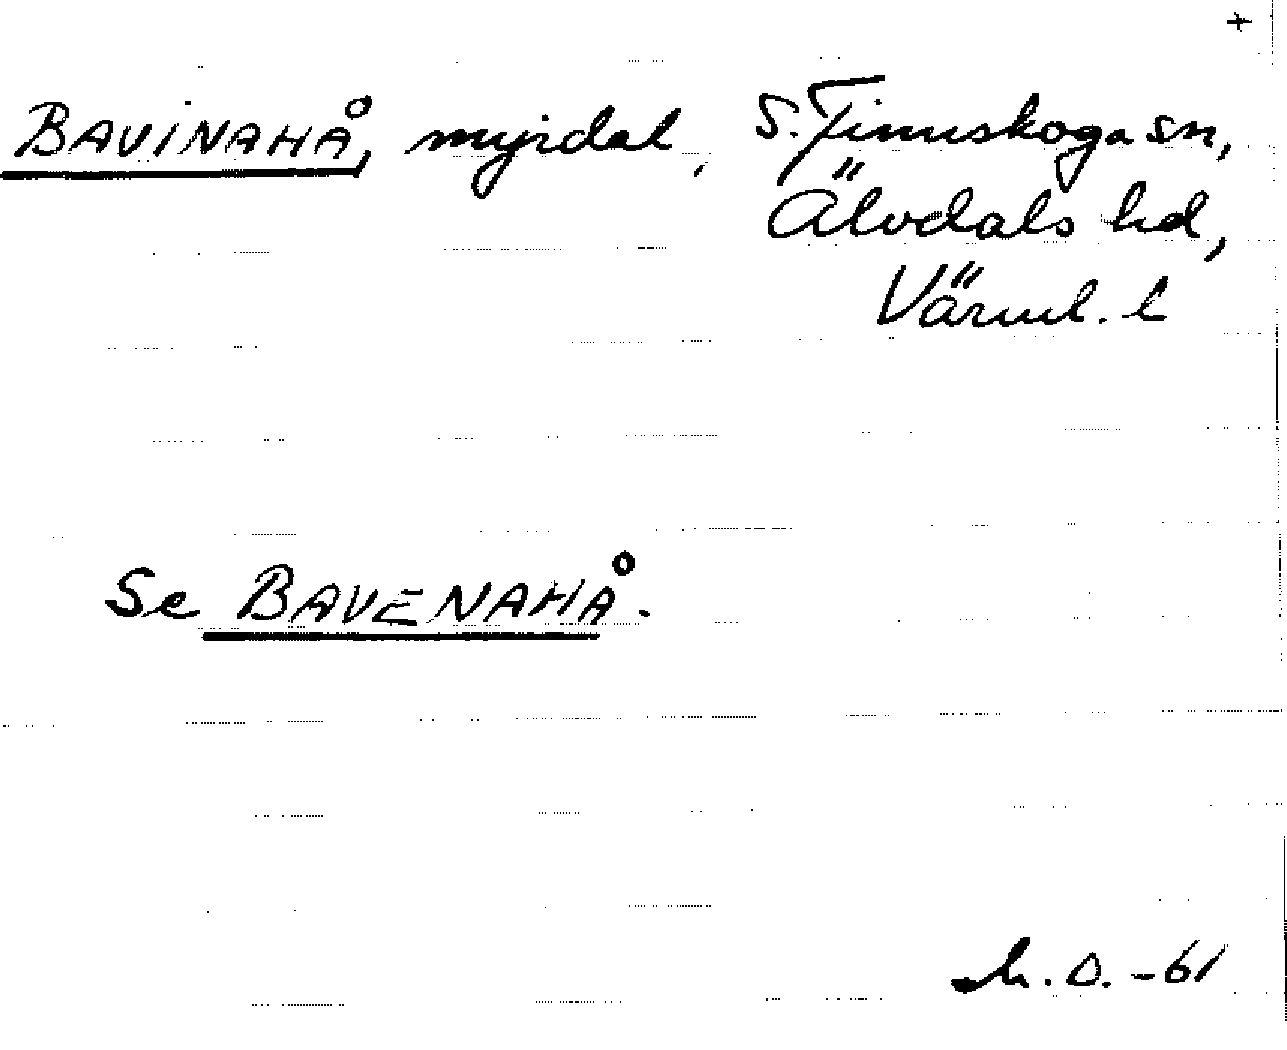 +
BAVINAHÅ, myrdal, S. Finnskoga sn,
Älvdals hd,
Värml. l
Se BAVENAHÅ.
D. -61